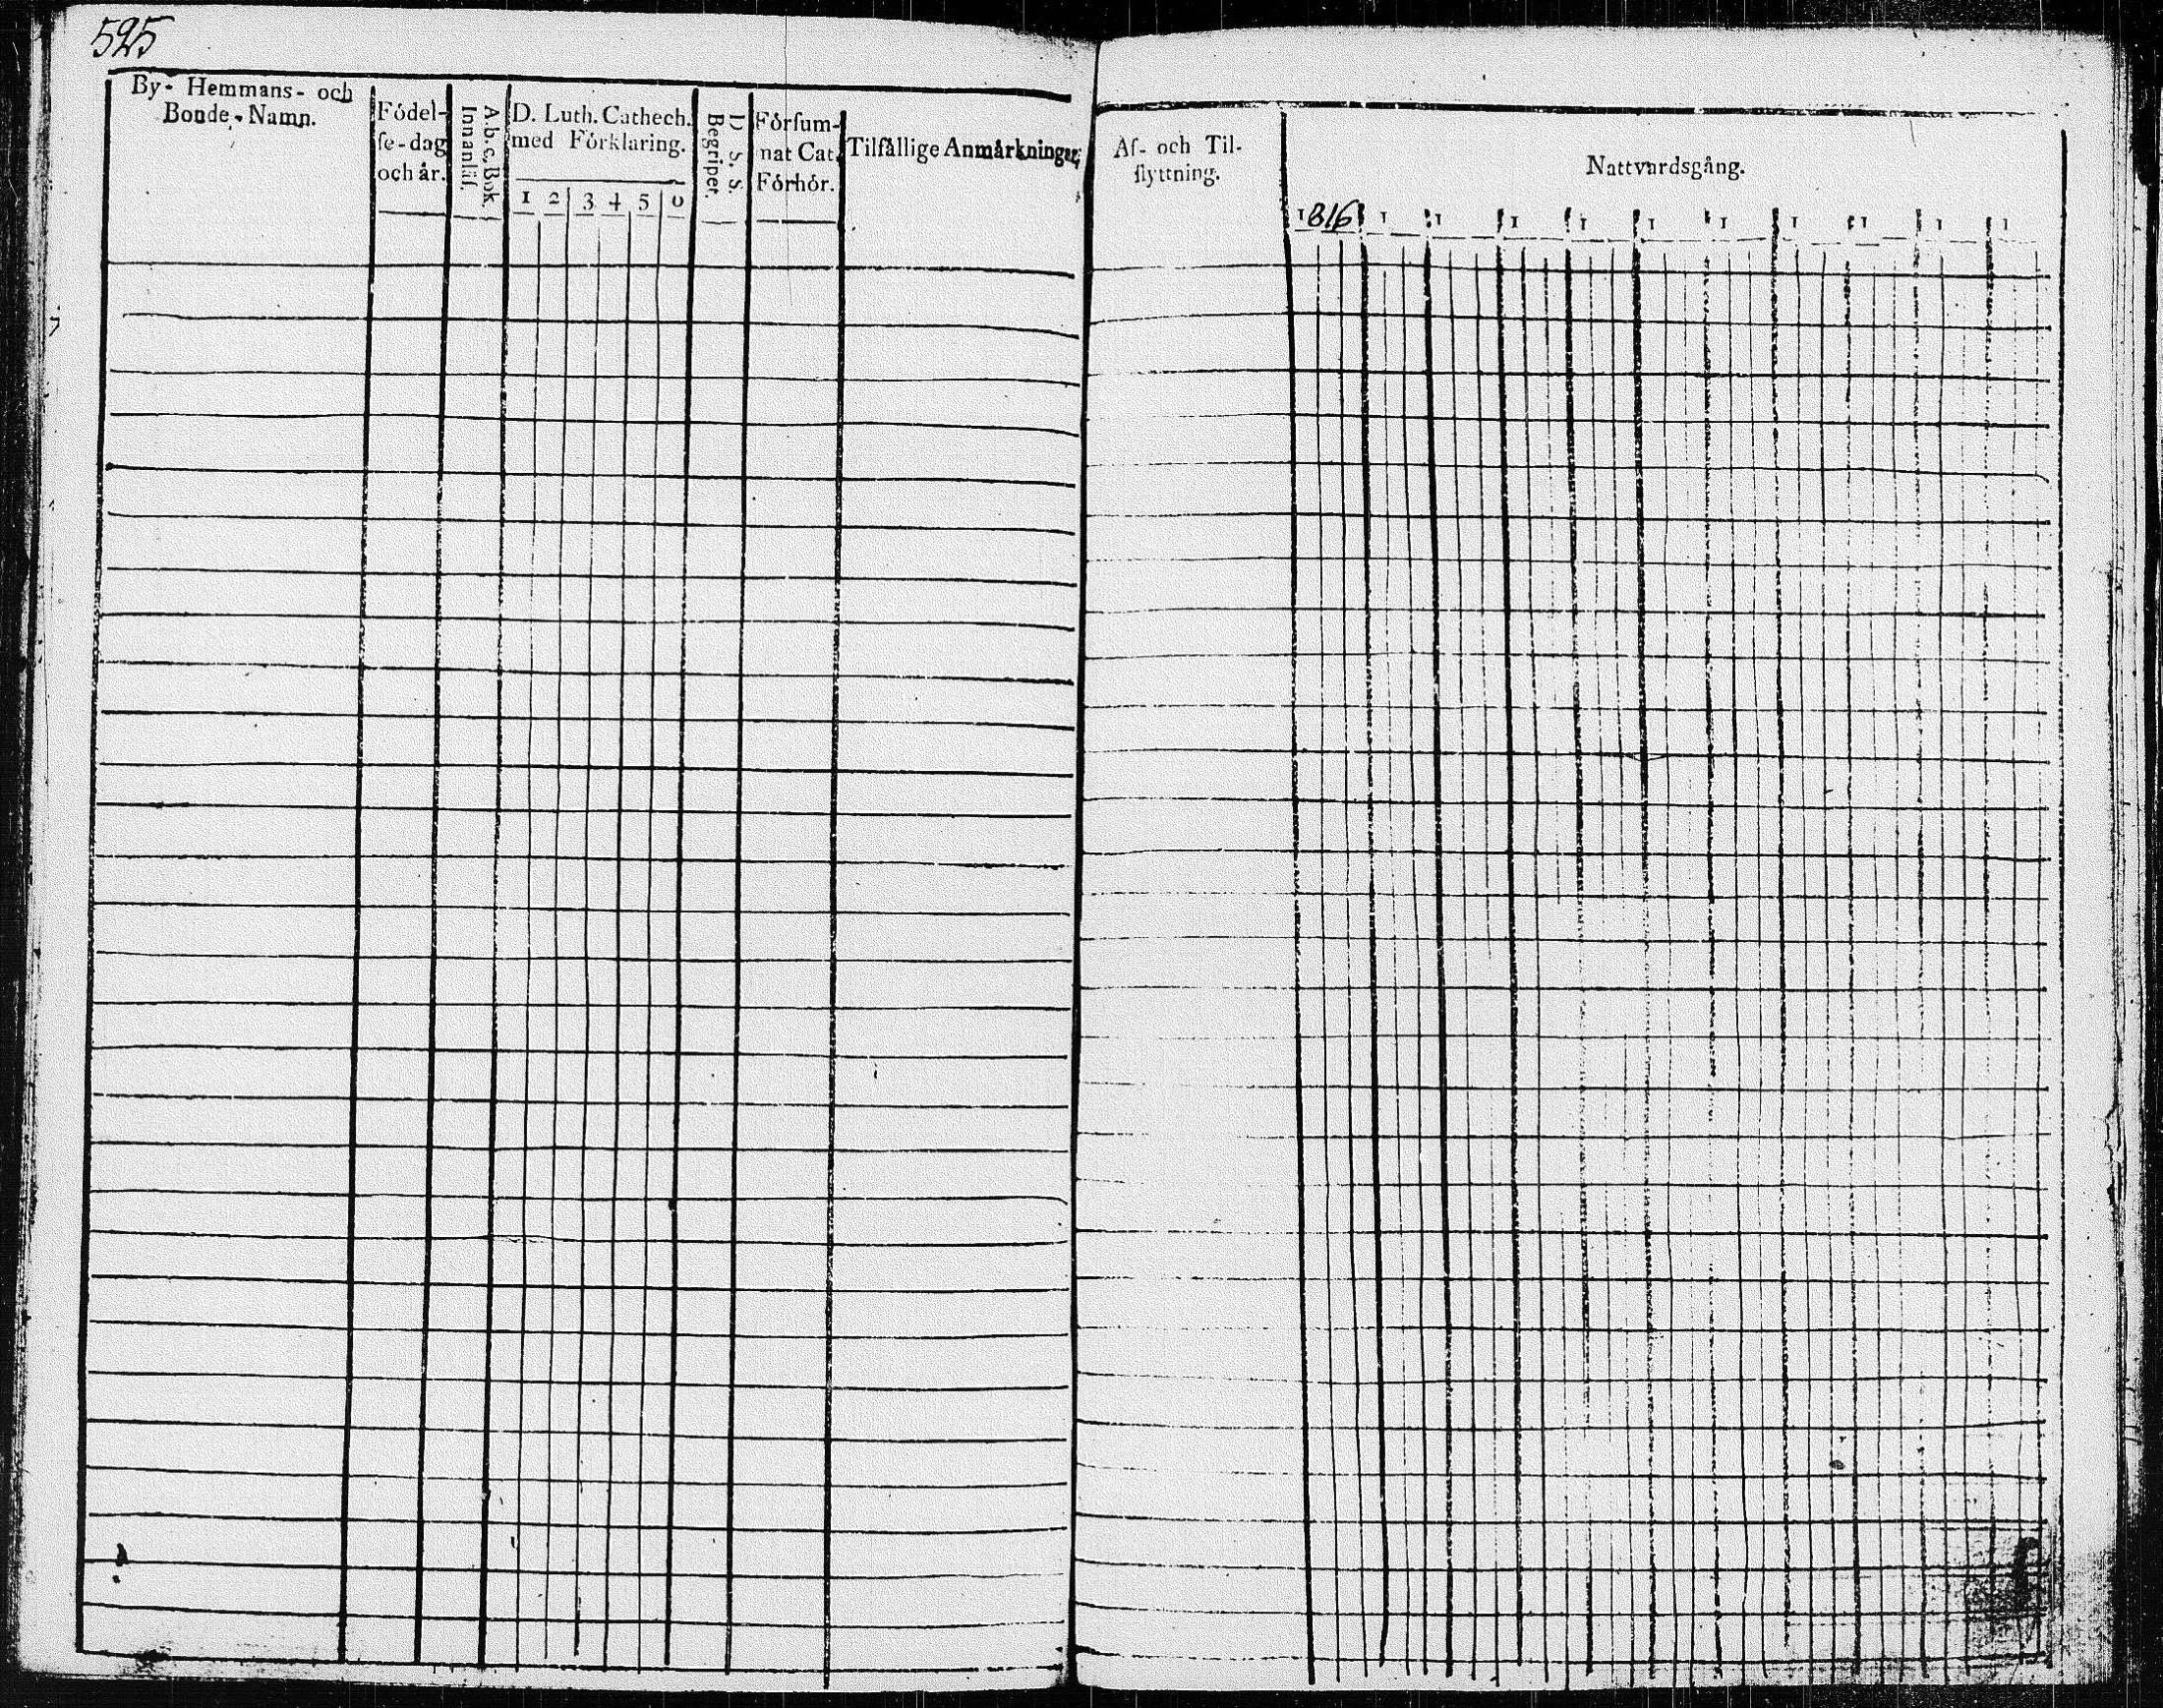 525
By- Hemmans- och
Bonde-Namn.
Födel-
se-dag
och år.
A.b.c. Bok.
Innanläs.
D. Luth. Cathech.
med Förklaring.
1 2 3 4 5 6
D. S. S.
Begriper.
Försum-
nat Cat.
Förhör.
Tilfällige Anmärkningar.
Af- och Til-
flyttning.
Nattvardsgång.
1816 1 1 1 1 1 1 1 1 1 1